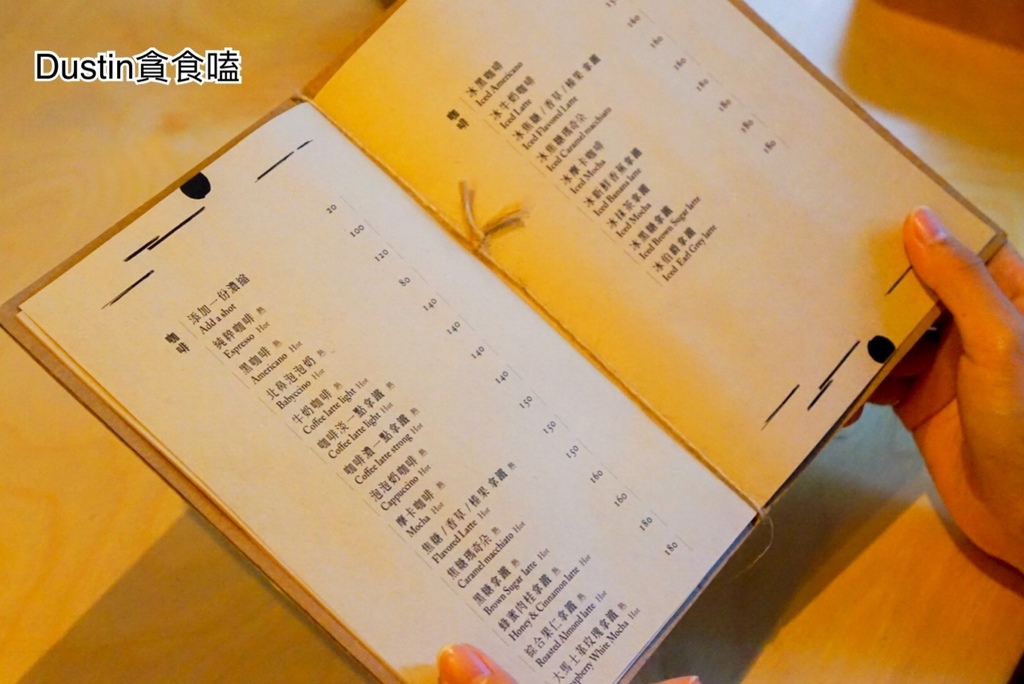 Dustin貪食嗑
咖啡
添加一份濃縮
Add a shot
20
純粹咖啡 熱
Espresso Hot
100
黑咖啡 熱
Americano Hot
120
北鼻泡泡奶 熱
Babyccino Hot
80
牛奶咖啡 熱
Coffee latte light Hot
140
咖啡淡一點拿鐵 熱
Coffee latte light Hot
140
咖啡濃一點拿鐵 熱
Coffee latte strong Hot
140
泡泡奶咖啡 熱
Cappuccino Hot
140
摩卡咖啡 熱
Mocha Hot
150
焦糖/香草/榛果 拿鐵 熱
Flavored Latte Hot
150
焦糖瑪奇朵 熱
Caramel macchiato Hot
150
黑糖拿鐵 熱
Brown Sugar latte Hot
160
蜂蜜肉桂拿鐵 熱
Honey & Cinnamon latte Hot
160
綜合果仁拿鐵 熱
Roasted Almond latte Hot
180
大馬士革玫瑰拿鐵 熱
White Mocha Hot
180
咖啡
冰黑咖啡
Iced Americano
冰牛奶咖啡
Iced Latte
冰焦糖/香草/榛果 拿鐵
Iced Flavored Latte
160
冰焦糖瑪奇朵
Iced Caramel macchiato
160
冰摩卡咖啡
Iced Mocha
160
冰新鮮香蕉拿鐵
Iced Banana latte
180
冰抹茶拿鐵
Iced Mocha
180
冰黑糖拿鐵
Iced Brown Sugar latte
180
冰伯爵拿鐵
Iced Earl Grey latte
180